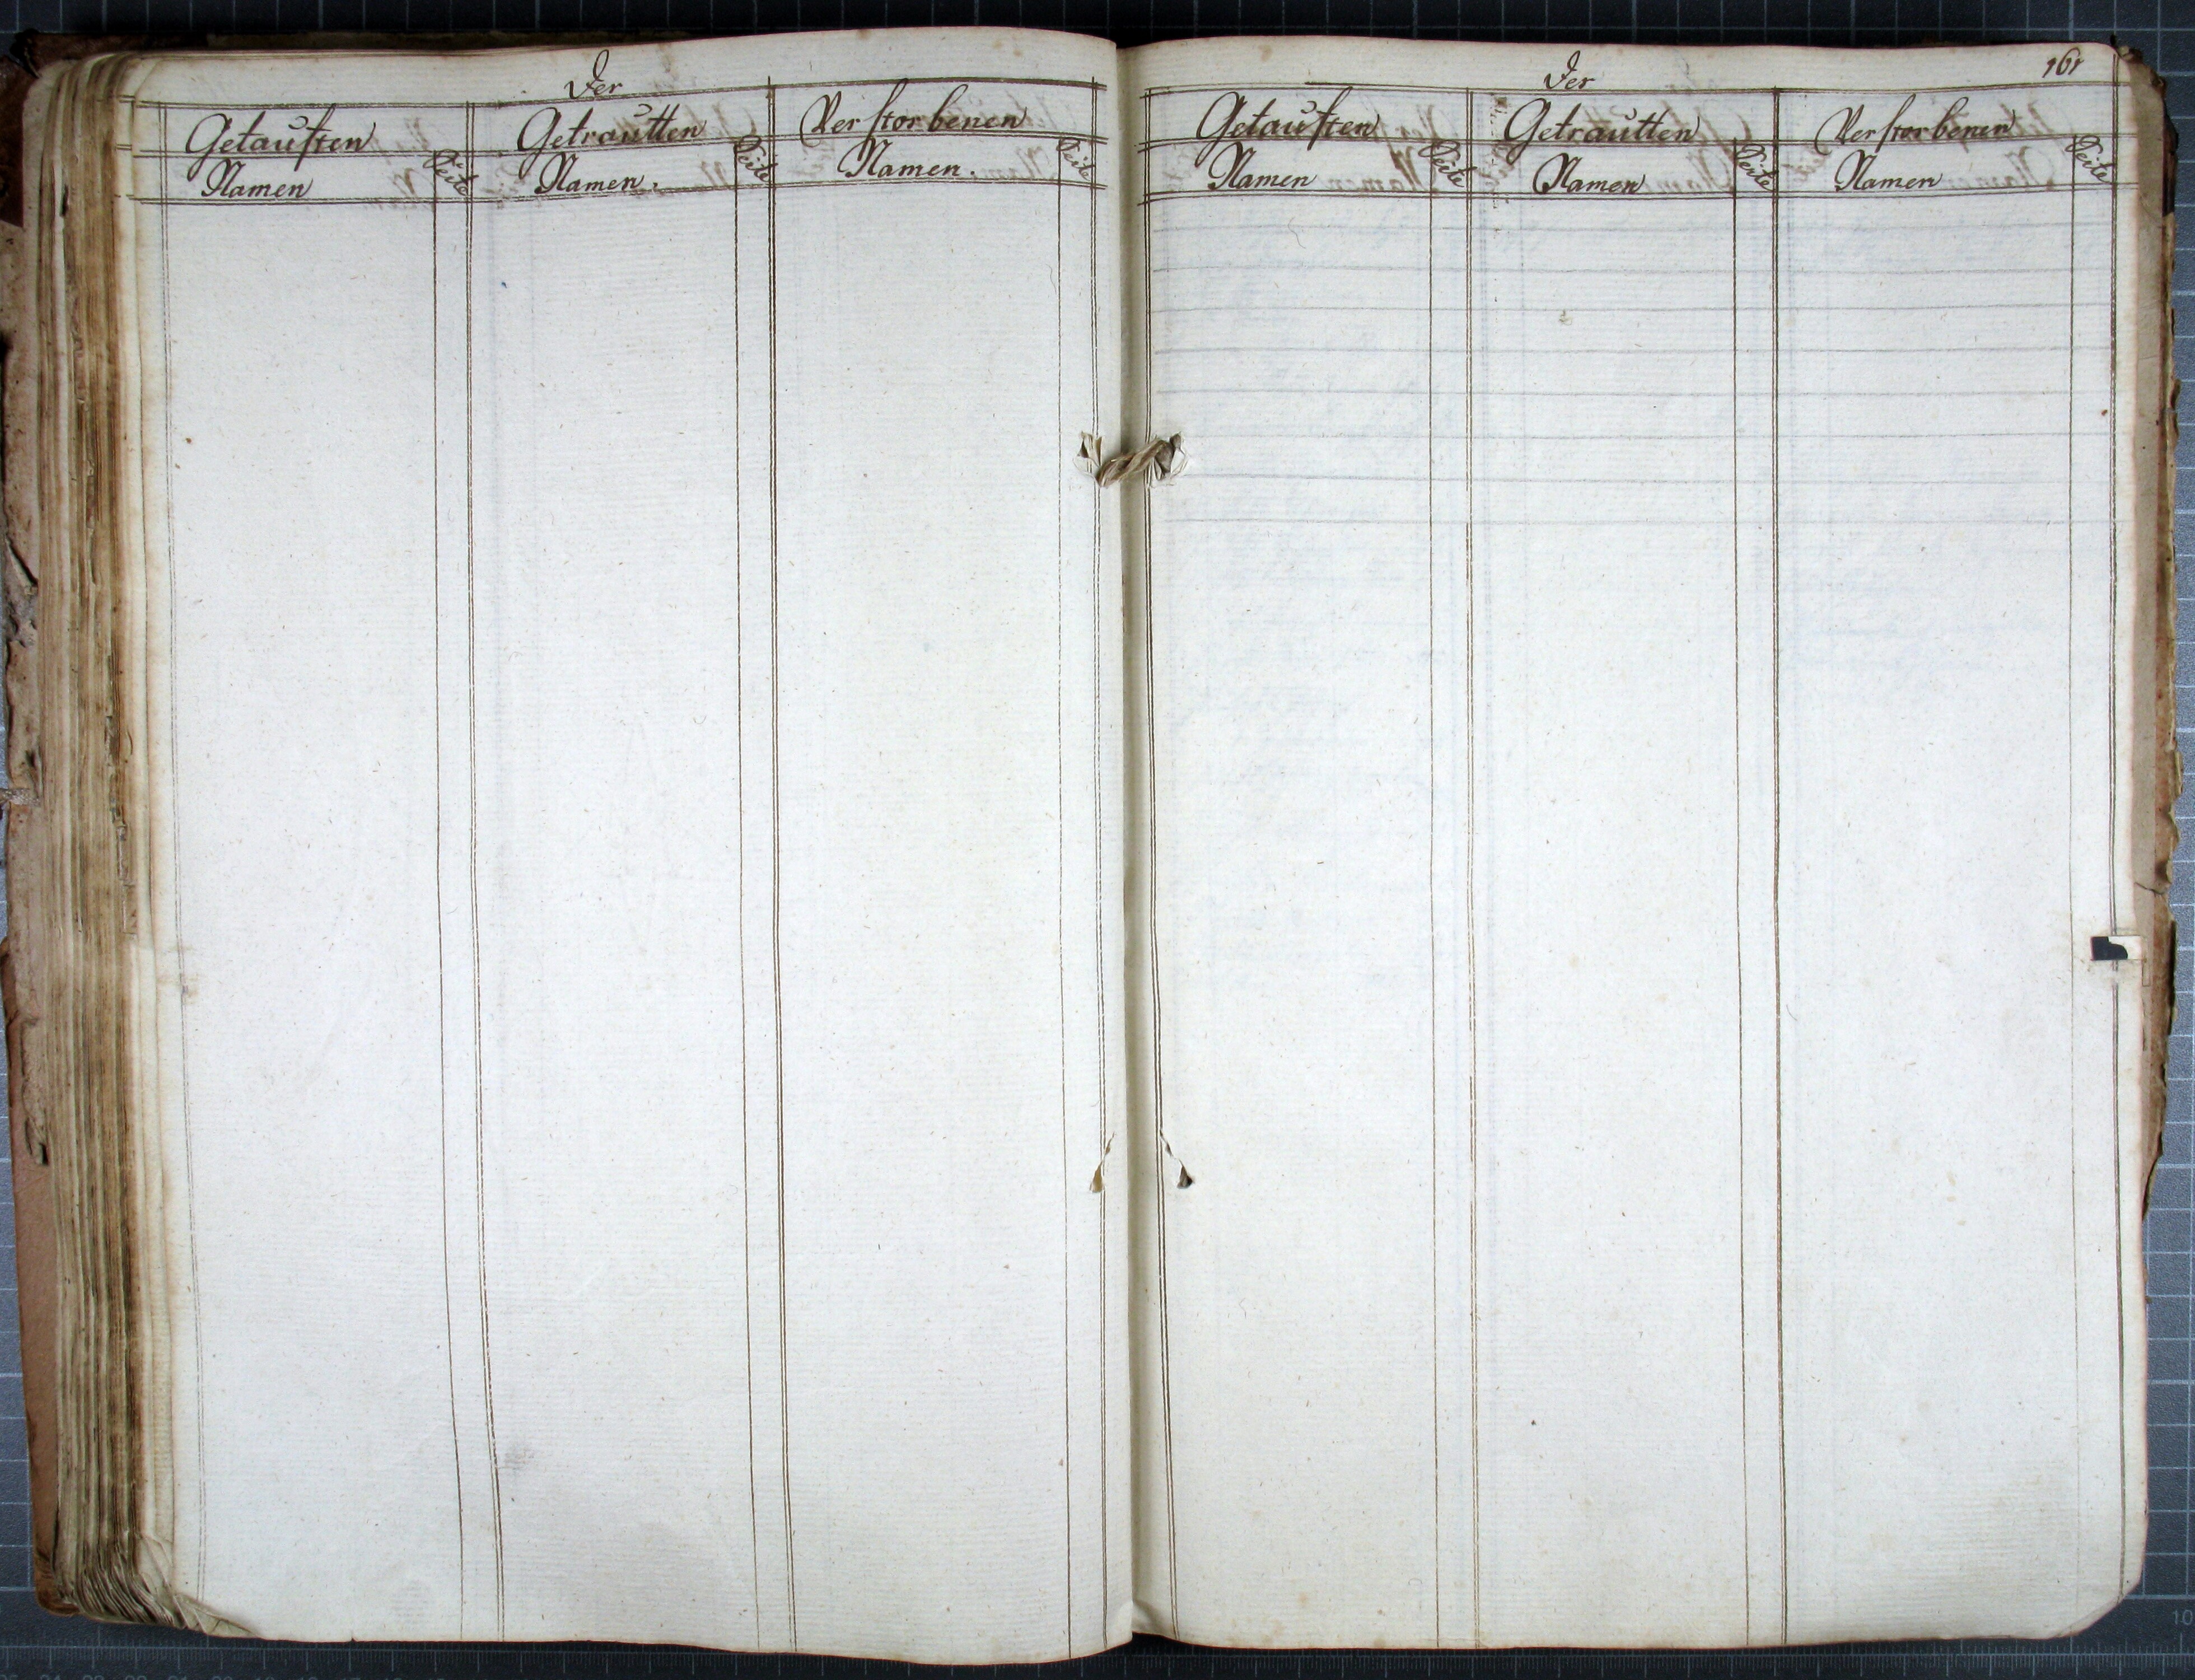 Der
Getauften Getrautten Verstorbenen
Namen Seite Namen. Seite Namen. Seite
Der 161
Getauften Getrautten Verstorbenen
Namen Seite Namen Seite Namen Seite